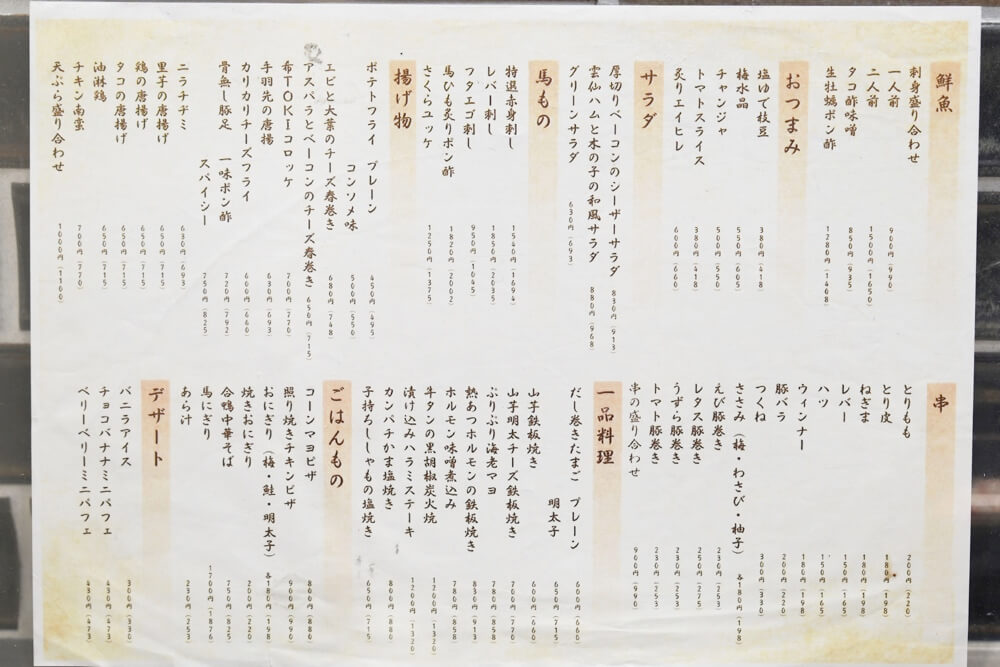 鮮魚
刺身盛り合わせ
一人前 900円(990)
二人前 1500円(1650)
タコ酢味噌 850円(935)
生牡蠣ポン酢 1280円(1408)
おつまみ
塩ゆで枝豆 380円(418)
梅水晶 550円(605)
チャンジャ 500円(550)
トマトスライス 380円(418)
炙りエイヒレ 600円(660)
サラダ
厚切りベーコンのシーザーサラダ 830円(913)
雲仙ハムと木の子の和風サラダ 880円(968)
グリーンサラダ 630円(693)
馬もの
特選赤身刺し 1540円(1694)
レバー刺し 1850円(2035)
フタエゴ刺し 950円(1045)
馬ひも炙りポン酢 1820円(2002)
さくらユッケ 1250円(1375)
揚げ物
ポテトフライ プレーン 450円(495)
コンソメ味 500円(550)
エビと大葉のチーズ春巻き 680円(748)
アスパラとベーコンのチーズ春巻き 650円(715)
希TOKIコロッケ 700円(770)
手羽先の唐揚 630円(693)
カリカリチーズフライ 600円(660)
骨無し豚足 一味ポン酢 720円(792)
スパイシー 750円(825)
ニラチヂミ 630円(693)
里芋の唐揚げ 650円(715)
鶏の唐揚げ 650円(715)
タコの唐揚げ 650円(715)
油淋鶏 650円(715)
チキン南蛮 700円(770)
天ぷら盛り合わせ 1000円(1100)
串
とりもも 200円(220)
とり皮 180円(198)
ねぎま 180円(198)
レバー 150円(165)
ハツ 150円(165)
ウィンナー 180円(198)
豚バラ 200円(220)
つくね 300円(330)
ささみ(梅・わさび・柚子) 各180円(198)
えび豚巻き 230円(253)
レタス豚巻き 250円(275)
うずら豚巻き 230円(253)
トマト豚巻き 230円(253)
串の盛り合わせ 900円(990)
一品料理
だし巻きたまご プレーン 600円(660)
明太子 650円(715)
山芋鉄板焼き 600円(660)
山芋明太チーズ鉄板焼き 700円(770)
ぷりぷり海老マヨ 780円(858)
熱あつホルモンの鉄板焼き 830円(913)
ホルモン味噌煮込み 780円(858)
牛タンの黒胡椒炭火焼 1200円(1320)
漬け込みハラミステーキ 1200円(1320)
カンパチかま塩焼き 800円(880)
子持ちししゃもの塩焼き 650円(715)
ごはんもの
コーンマヨピザ 800円(880)
照り焼きチキンピザ 900円(990)
おにぎり(梅・鮭・明太子) 各180円(198)
焼きおにぎり 200円(220)
合鴨中華そば 750円(825)
馬にぎり 1700円(1870)
あら汁 230円(253)
デザート
バニラアイス 300円(330)
チョコバナナミニパフェ 430円(473)
ベリーベリーミニパフェ 430円(473)